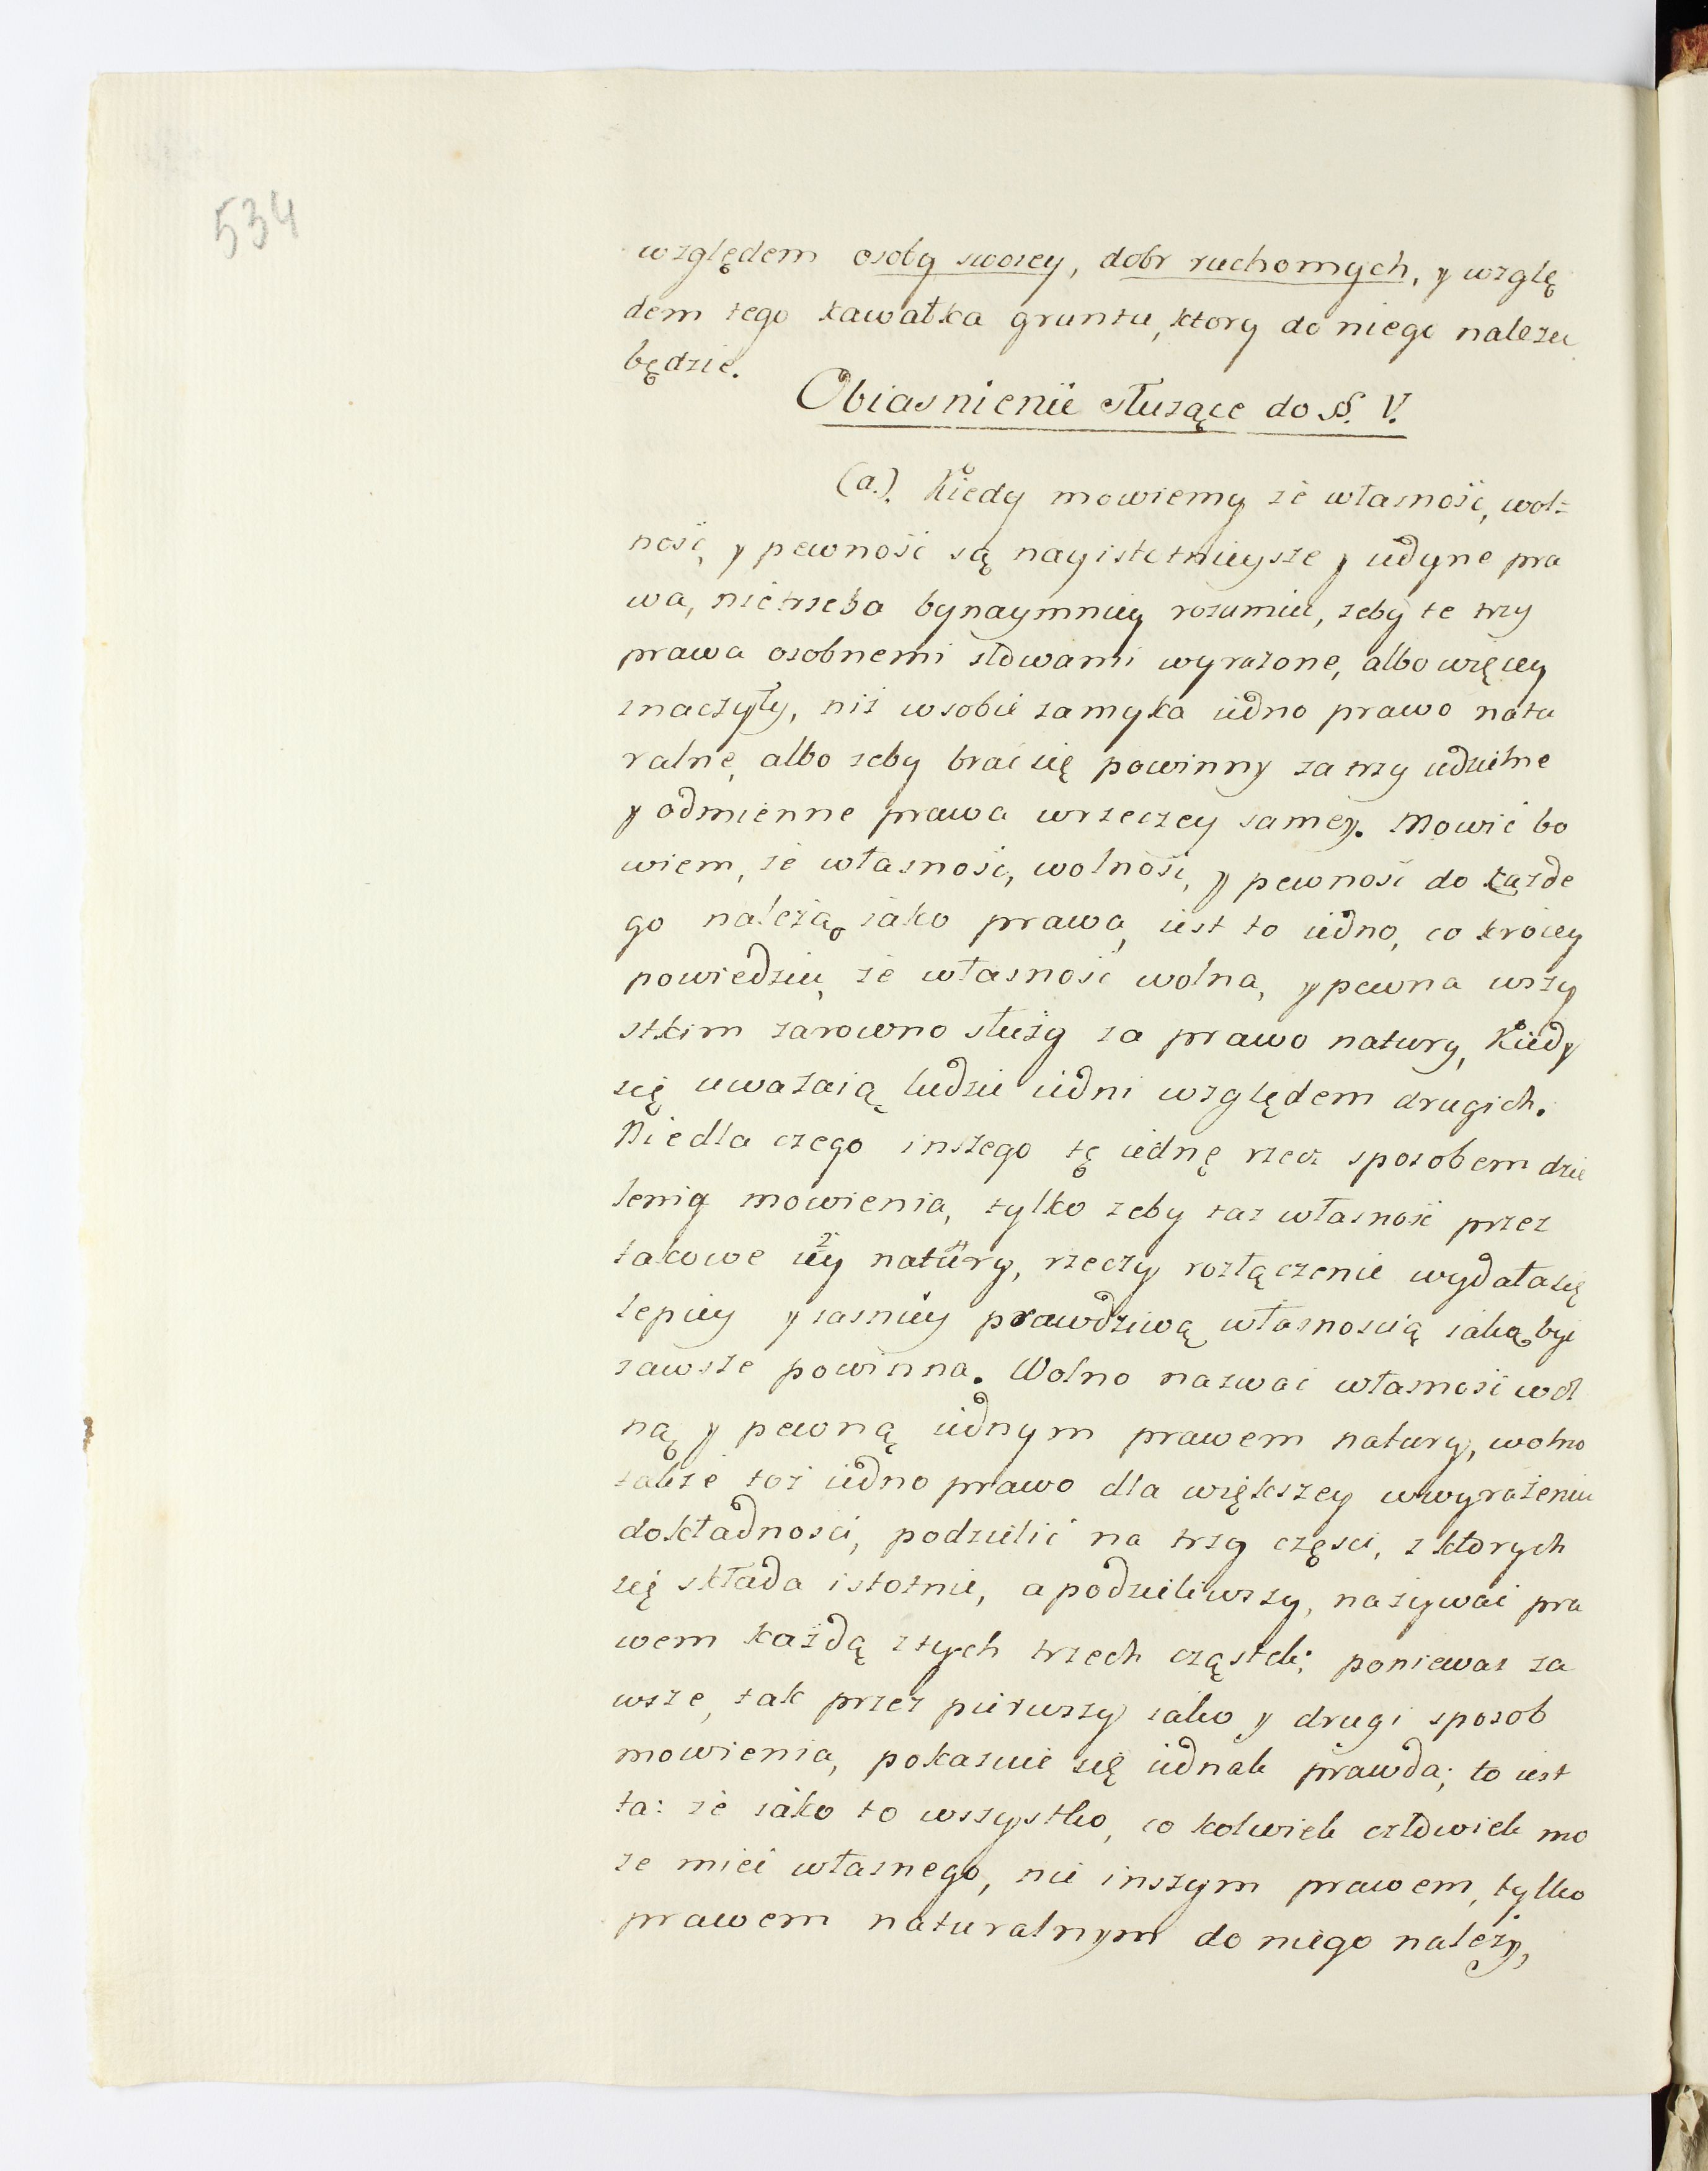 534
względem osoby swoiey, dobr ruchomych, y wzglę
dem tego kawałka gruntu, ktory do niego nalezec
będzie.
Obiasnienie słuzące do §§. V.
(a.). Kiedy mowiemy ze własność, wol=
ność, y pewność są nayistotnieysze y iedyne pra
wa, nietrzeba bynaymniey rozumiec, zeby te trzy
prawa osobnemi słowami wyrazone, albo więcey
znaczyły, niż w sobie zamyka iedno prawo natu
ralne, albo zeby brać się powinny za trzy udzielne
y odmienne prawa w rzeczey samey. Mowić bo
wiem, że własność, wolność, y pewność do każde
go należą, iako prawa, iest to iedno, co krocey
powiedziec, że własność wolna, y pewna wszy
stkim zarowno służy za prawo natury, Kiedy
się uważaią ludzie iedni względem drugich.
Niedla czego inszego tę iednę rzecz sposobem dzie
lenia mowienia, tylko zeby taz własność przez
takowe iey natury, rzeczy rozłączenie wydała się
lepiey y iasniey prawdziwą własnoscią iaką być
zawsze powinna. Wolno nazwać własność wol
ną, y pewną iednym prawem natury, wolno
także toż iedno prawo dla większey w wyrażeniu
dokładnosci, podzielić na trzy częsci, z ktorych
się składa istotnie, a podzieliwszy, nazywać pra
wem każdą z tych trzech cząstek; ponieważ za
wsze, tak przez pierwszy iako y drugi sposob
mowienia, pokazuie się iednak prawda; to iest
ta: że iako to wszystko, co kolwiek człowiek mo
że mieć własnego, nie inszym prawem, tylko
prawem naturalnym do niego należy,